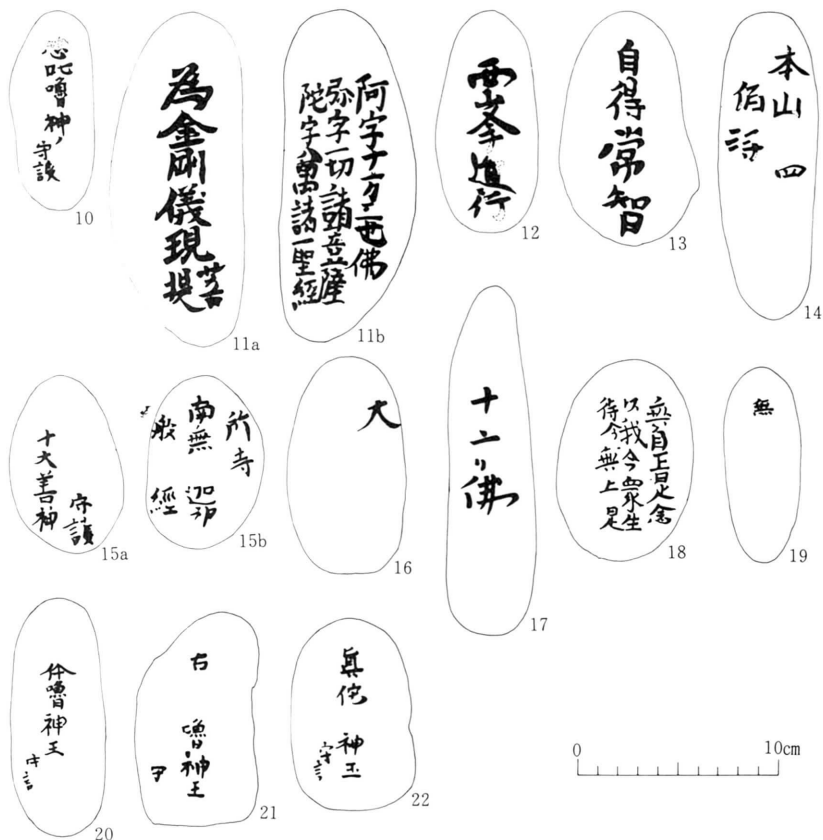 神
守護
10
為金剛儀現
菩提
11a
阿字十方三世佛
弥字一切諸菩薩
陀字八萬諸一聖經
11b
進行
12
自得常智
13
本山 四
伯
14
十六善神
守護
15a
所寺
南無
般 經
15b
大
16
十二リ佛
17
無自
以我今衆生
待今無上是
18
無
19
嚕神王
守言
20
右
嚕神王
21
真侘 神王
守言
22
0
10cm